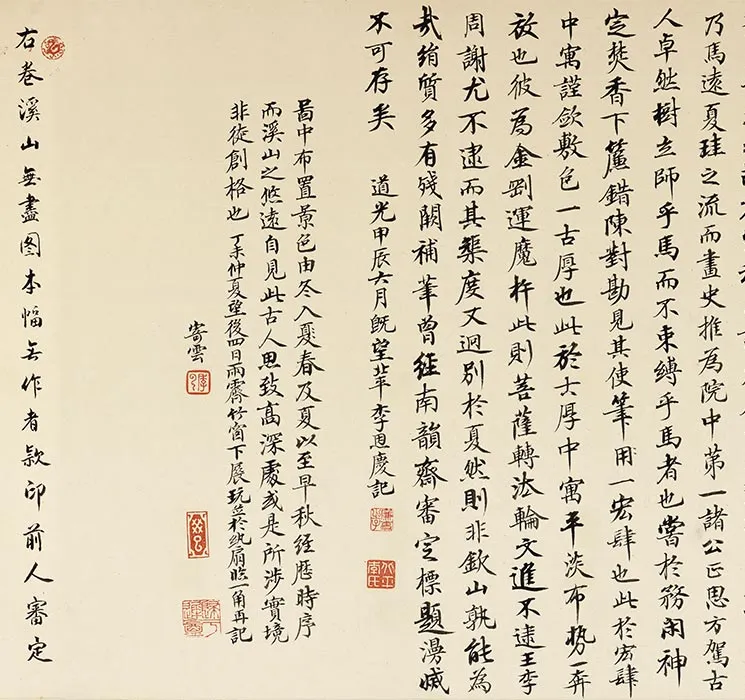 乃馬遠夏珪之流而畫史推為院中第一諸公正思方駕古
人卓然樹立師乎馬而不束縛乎馬者也嘗於務閑神
定焚香下簾錯陳對勘見其使筆用一宏肆也此於宏肆
中寓謹歛敷色一古厚也此於古厚中寓平淡布勢一奔
放也彼為金剛運魔杵此則菩薩轉法輪文進不逮王李
周謝尤不逮而其榘度又迥別於夏然則非欽山孰能為
哉絹質多有殘闕補筆曾經南韻齋審定標題漫滅
不可存矣 道光甲辰六月既望北平李恩慶記
圖中布置景色由冬入夏春及夏以至早秋經歷時序
而溪山之悠遠自見此古人思致高深處或是所涉實境
非徒創格也 丁未仲夏望後四日雨霽竹窗下展玩並於紈扇臨一角再記
寄雲
右卷溪山無盡图本幅無作者款印前人審定